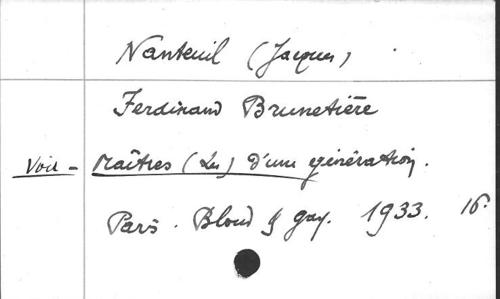 Nanteuil (Jacques)
Ferdinand Brunetière
Voir - Maîtres (Les) d'une génération.
Paris. Bloud & Gay. 1933. 16°